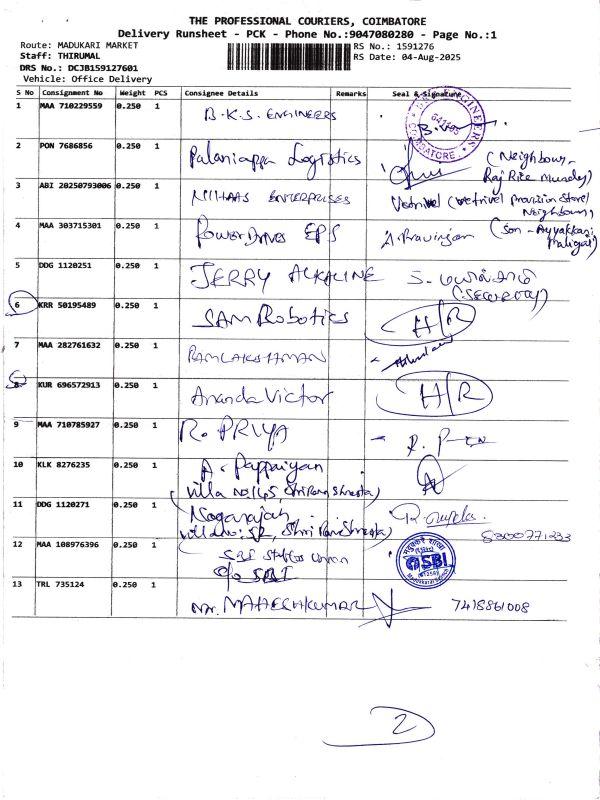 THE PROFESSIONAL COURIERS, COIMBATORE
Delivery Runsheet - PCK - Phone No.:9047080280 - Page No.:1
Route: MADUKARI MARKET RS No.: 1591276
Staff: THIRUMAL RS Date: 04-Aug-2025
DRS No.: DCJB159127601
Vehicle: Office Delivery
S No Consignment No Weight PCS Consignee Details Remarks Seal & Signature
1 MAA 710229559 0.250 1 B.K.S. ENGINEERS
2 PON 7686856 0.250 1 Palaniappa Logistics (Neighbour-
Raj Rice Mundey)
3 ABI 20250793006 0.250 1 NITHAAS ENTERPRISES Vetrivel (Vetrivel Provision Store)
Neighbour)
4 MAA 303715301 0.250 1 PowerDrives EPS A. Pravinjan (Son -
5 DDG 1120251 0.250 1 JERRY ALKALINE
(SECURITY)
6 KRR 50195489 0.250 1 SAM Robotics H/R
7 MAA 282761632 0.250 1 RAMLAKSHMAN
8 KUR 696572913 0.250 1 Ananda Victor H/R
9 MAA 710785927 0.250 1 R. PRIYA
10 KLK 8276235 0.250 1 A. Pappaiyan
Villa No:145,
11 DDG 1120271 0.250 1 Nagarajan
Villa No: 52, Shri Ram Shresta)
8300771233
12 MAA 108976396 0.250 1 SBI Staff Union
C/o SBI
SBI
13 TRL 735124 0.250 1 Mr. MAHESHKUMAR 7418861008
2